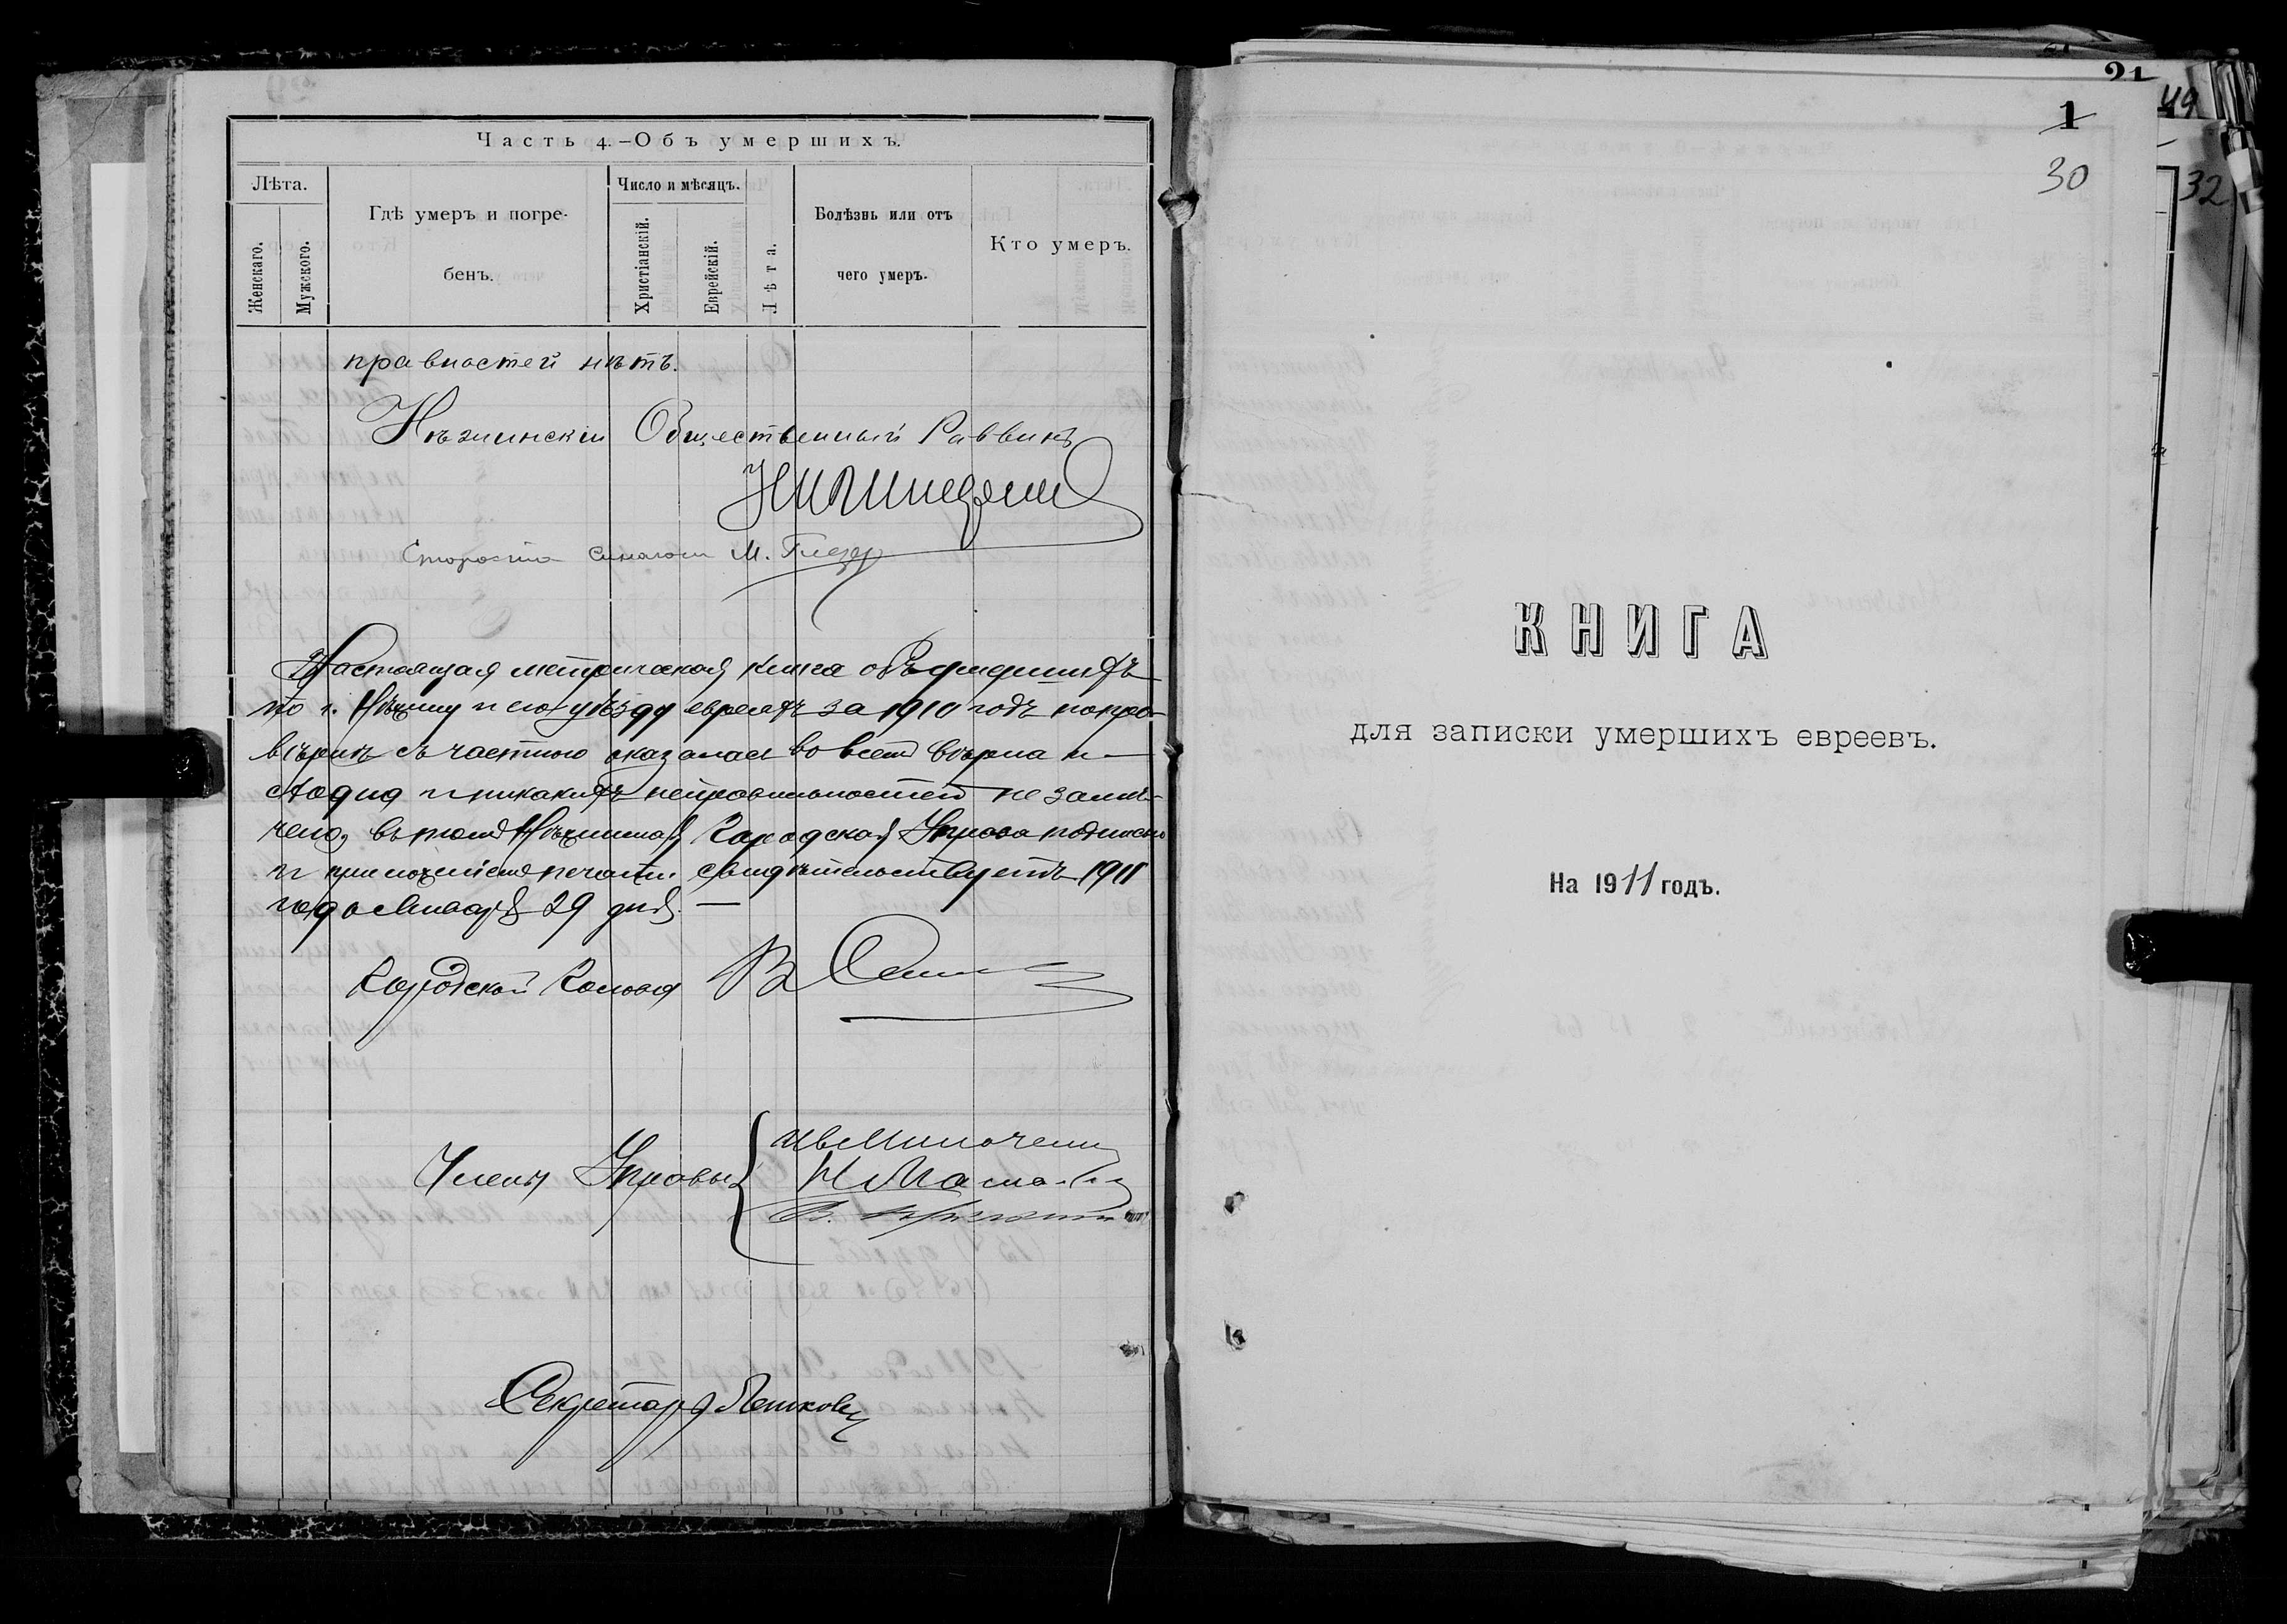 Часть 4.—Объ умершихъ.
Лѣта.
Женскаго.
Мужскаго.
Гдѣ умеръ и погре-
бенъ.
Число и мѣсяцъ.
Христіанскій.
Еврейскій.
Лѣта.
Болѣзнь или отъ
чего умеръ.
Кто умеръ.
правностей нѣтъ.
Нѣжинскій Общественный Раввинъ
Староста М. Глезер
Настоящая метрическая книга объ умершихъ
по г. Нѣжину и его уѣзду евреяхъ за 1910 годъ по про-
вѣркѣ съ частною оказалась во всемъ вѣрна и
сходна и никакихъ неправильностей не замѣ-
чено, въ томъ Нѣжинская Городская Управа подписью
и приложеніемъ печати свидѣтельствуетъ 1911
года Января 29 дня. —
Городской Голова
Члены Управы
Секретарь
21
49
1
30
32
КНИГА
для записки умершихъ евреевъ.
На 1911 годъ.